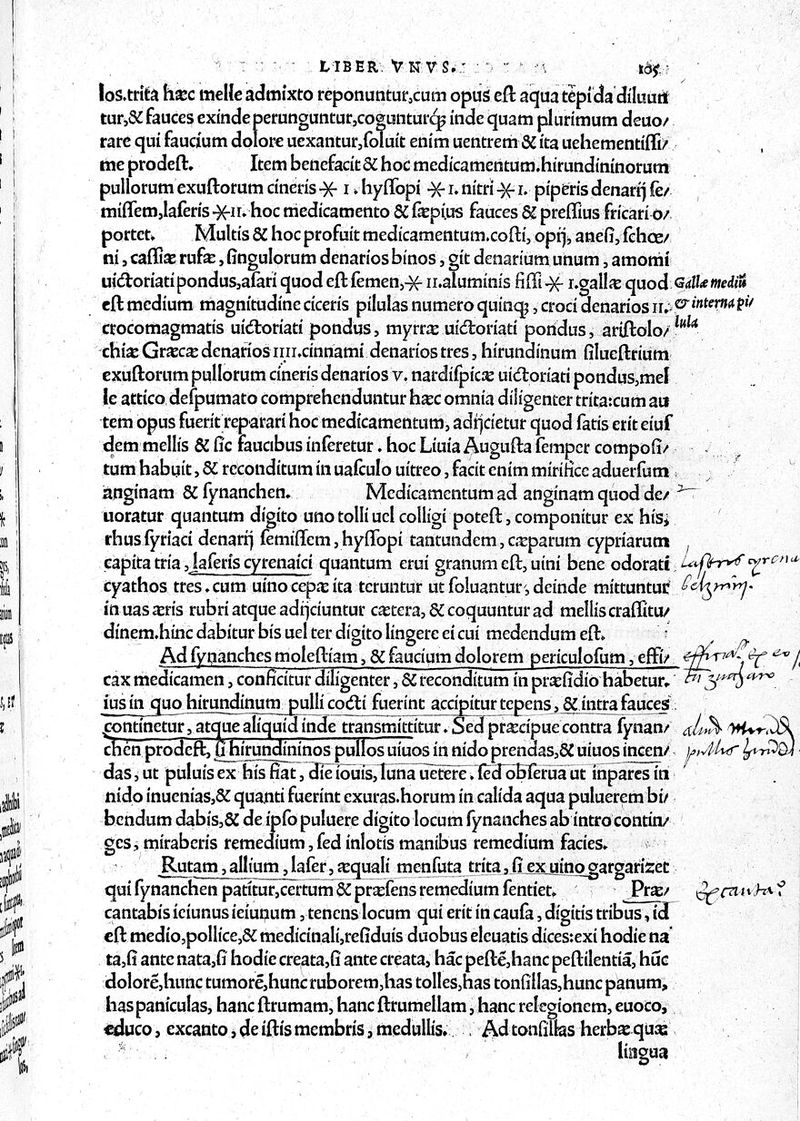 LIBER VNVS. 105
los.trita hæc melle admixto reponuntur,cum opus eſt aqua tepida diluun
tur,& fauces exinde perunguntur,cogunturq; inde quam plurimum deuo/
rare qui faucium dolore uexantur,ſoluit enim uentrem & ita uehementiſſi/
me prodeſt. Item benefacit & hoc medicamentum.hirundininorum
pullorum exuſtorum cineris ⚹ I. hyſſopi ⚹ I. nitri ⚹ I. piperis denarij ſe/
miſſem,laſeris ⚹ II. hoc medicamento & ſæpius fauces & preſſius fricari o/
portet. Multis & hoc profuit medicamentum.coſti, opij, aneſi, ſchœ/
ni, caſſiæ rufæ, ſingulorum denarios binos, git denarium unum, amomi
uictoriati pondus,aſari quod eſt ſemen, ⚹ II.aluminis fiſſi ⚹ I.gallæ quod
Gallæ mediũ
eſt medium magnitudine ciceris pilulas numero quinq;, croci denarios II.
& interna pi/
crocomagmatis uictoriati pondus, myrræ uictoriati pondus, ariſtolo/
lula
chiæ Græcæ denarios IIII.cinnami denarios tres, hirundinum ſilueſtrium
exuſtorum pullorum cineris denarios V. nardiſpicæ uictoriati pondus,mel
le attico deſpumato comprehenduntur hæc omnia diligenter trita:cum au
tem opus fuerit reparari hoc medicamentum, adijcietur quod ſatis erit eiuſ
dem mellis & ſic faucibus inſeretur. hoc Liuia Auguſta ſemper compoſi/
tum habuit, & reconditum in uaſculo uitreo, facit enim mirifice aduerſum
anginam & ſynanchen. Medicamentum ad anginam quod de/
uoratur quantum digito uno tolli uel colligi poteſt, componitur ex his,
rhus ſyriaci denarij ſemiſſem, hyſſopi tantundem, cæparum cypriarum
capita tria, laſeris cyrenaici quantum erui granum eſt, uini bene odorati
laſeris cyrena
cyathos tres. cum uino cepæ ita teruntur ut ſoluantur, deinde mittuntur
in uas æris rubri atque adijciuntur cætera, & coquuntur ad mellis craſſitu/
dinem.hinc dabitur bis uel ter digito lingere ei cui medendum eſt.
Ad ſynanches moleſtiam, & faucium dolorem periculoſum, effi/
cax medicamen, conficitur diligenter, & reconditum in præſidio habetur.
ius in quo hirundinum pulli cocti fuerint accipitur tepens, & intra fauces
continetur, atque aliquid inde transmittitur. Sed præcipue contra ſynan/
chen prodeſt, ſi hirundininos pullos uiuos in nido prendas,& uiuos incen/
das, ut puluis ex his fiat, die iouis, luna uetere. ſed obſerua ut inpares in
nido inuenias,& quanti fuerint exuras.horum in calida aqua puluerem bi/
bendum dabis,& de ipſo puluere digito locum ſynanches ab intro contin/
ges, miraberis remedium, ſed inlotis manibus remedium facies.
Rutam, allium, laſer, æquali menſura trita, ſi ex uino gargarizet
qui ſynanchen patitur,certum & præſens remedium ſentiet. Præ/
cantabis ieiunus ieiunum, tenens locum qui erit in cauſa, digitis tribus, id
eſt medio,pollice,& medicinali,reſiduis duobus eleuatis dices:exi hodie na
ta,ſi ante nata,ſi hodie creata,ſi ante creata, hãc peſtẽ,hanc peſtilentiã, hũc
dolorẽ,hunc tumorẽ,hunc ruborem,has tolles,has tonſillas,hunc panum,
has paniculas, hanc ſtrumam, hanc ſtrumellam, hanc relegionem, euoco,
educo, excanto, de iſtis membris, medullis. Ad tonſillas herbæ quæ
lingua